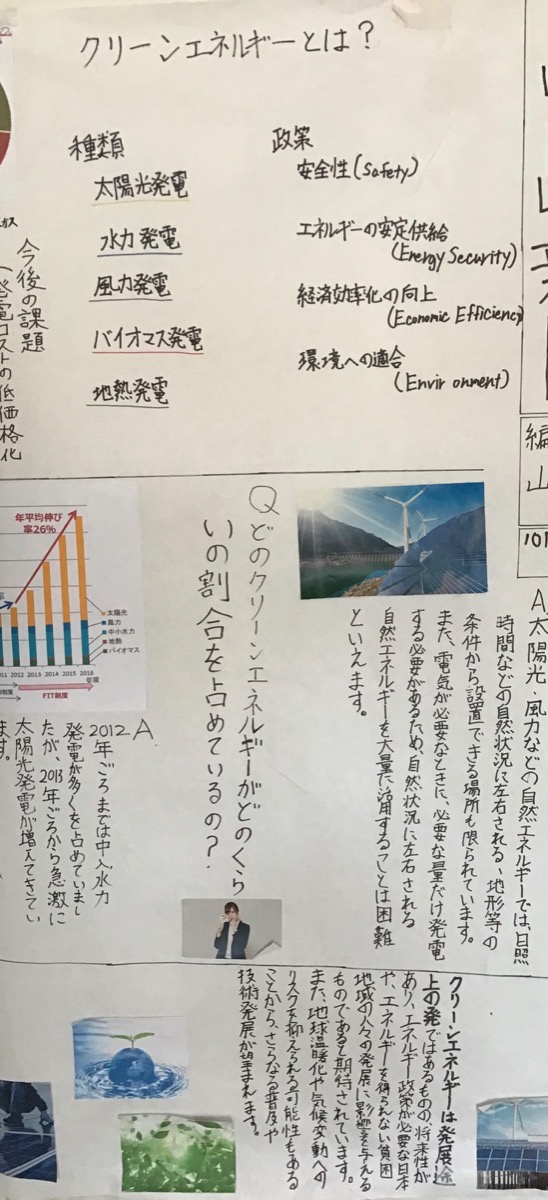 クリーンエネルギーとは？
種類
太陽光発電
水力発電
風力発電
バイオマス発電
地熱発電
政策
安全性(Safety)
エネルギーの安定供給
(Energy Security)
経済効率化の向上
(Economic Efficiency
環境への適合
(Envir onment)
今後の課題
発電コストの低価格化
編
山
10月
A 太陽光・風力などの自然エネルギーでは、日照
時間などの自然状況に左右される、地形等の
条件から設置できる場所も限られています。
また、電気が必要なときに、必要な量だけ発電
する必要があるため、自然状況に左右される
自然エネルギーを大量に活用することは困難
といえます。
Q どのクリーンエネルギーがどのくら
いの割合を占めているの？
年平均伸び
率26%
太陽光
風力
中小水力
地熱
バイオマス
2011 2012 2013 2014 2015 2016
年度
FIT制度
A
2012年ごろまでは中小水力
発電が多くを占めていまし
たが、2013年ごろから急激に
太陽光発電が増えてきてい
ます。
クリーンエネルギーは発展途
上の発ではあるものの、将来性が
あり、エネルギー政策が必要な日本
や、エネルギーを得られない貧困
地域の人々の発展に影響を与える
ものであると期待されています。
また、地球温暖化や気候変動への
リスクを抑えられる可能性もある
ことから、さらなる普及や
技術発展が望まれます。